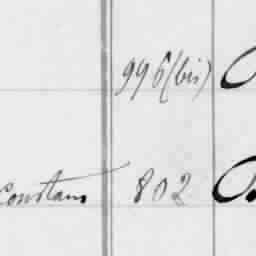 996 (bis)
Constans 802